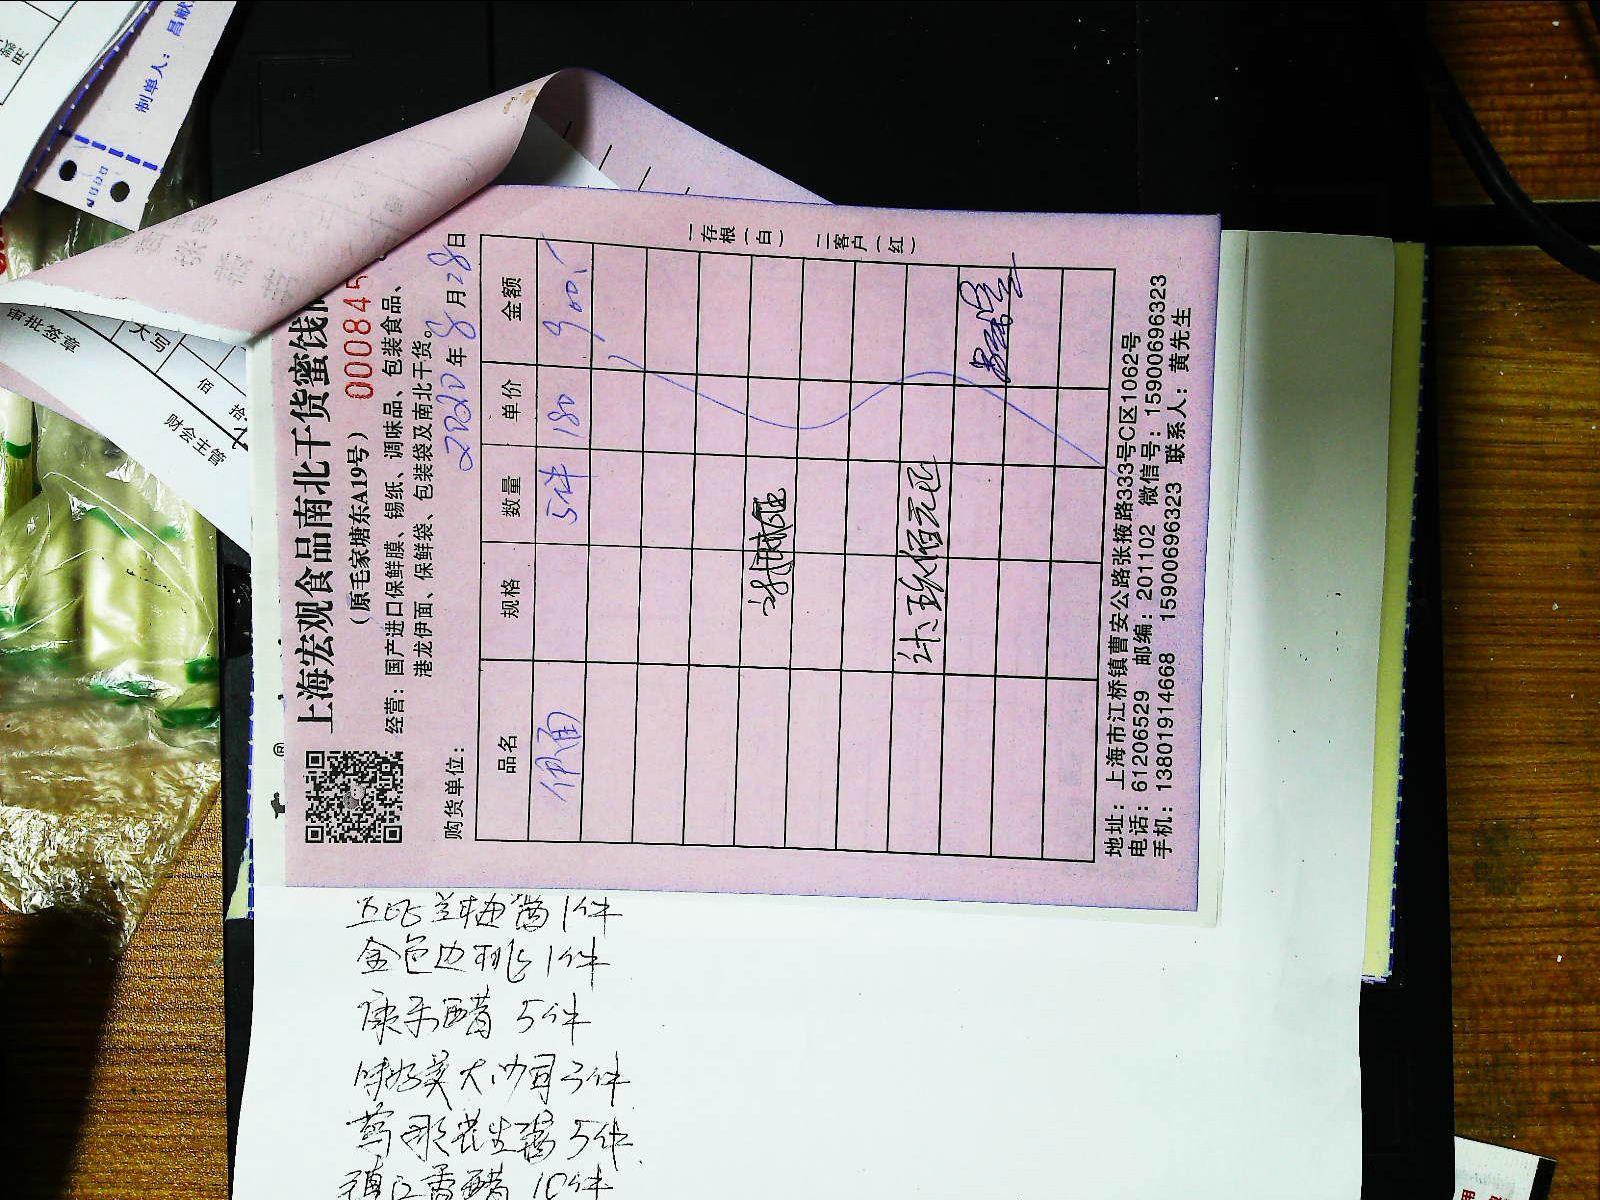 上海宏观食品南北干货蜜饯
（原毛家塘东A19号）
000845
经营：国产进口保鲜膜、锡纸、调味品、包装食品、
港龙伊面、保鲜袋、包装袋及南北干货。
购货单位：
2020年8月28日
品名 规格 数量 单价 金额
伊面 5件 180 900.-
计:玖佰元正
一存根（白） 二客户（红）
地址：上海市江桥镇曹安公路张掖路333号C区1062号
电话：61206529 邮编：201102 微信号：15900696323
手机：13801914668 15900696323 联系人：黄先生
制单人：昌献
审批签章
大写
佰 拾
财会主管
金色边桃1件
康乐醋 5件
味好美大沙司3件
花生酱 5件
镇江香醋 10件